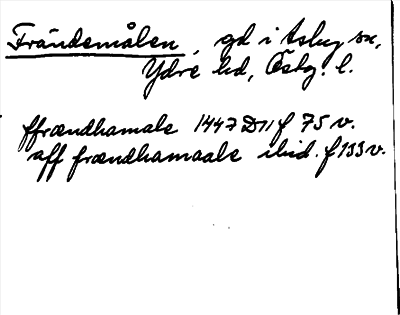 Frändemålen, gd i Asby sn,
Ydre hd, Östg. l.
ffrændhamale 1447 D 11 f 75 v.
aff frændhamaale ibid. f 133 v.